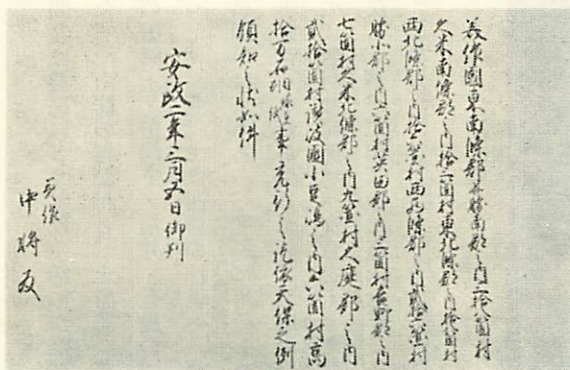 美作國東南條郡并勝南郡之内二拾八箇村
久米南條郡之内拾二箇村東北條郡之内拾箇村
西北條郡之内拾六箇村西西條郡之内貳拾六箇村
勝北郡之内六箇村英田郡之内二箇村吉野郡之内
七箇村久米北條郡之内九箇村大庭郡之内
貳拾箇村讃岐國小豆嶋之内六箇村高
拾万石 目録在別紙 事充行之訖依天保之例
領知之状如件
安政二年三月五日御判
美作
中将殿